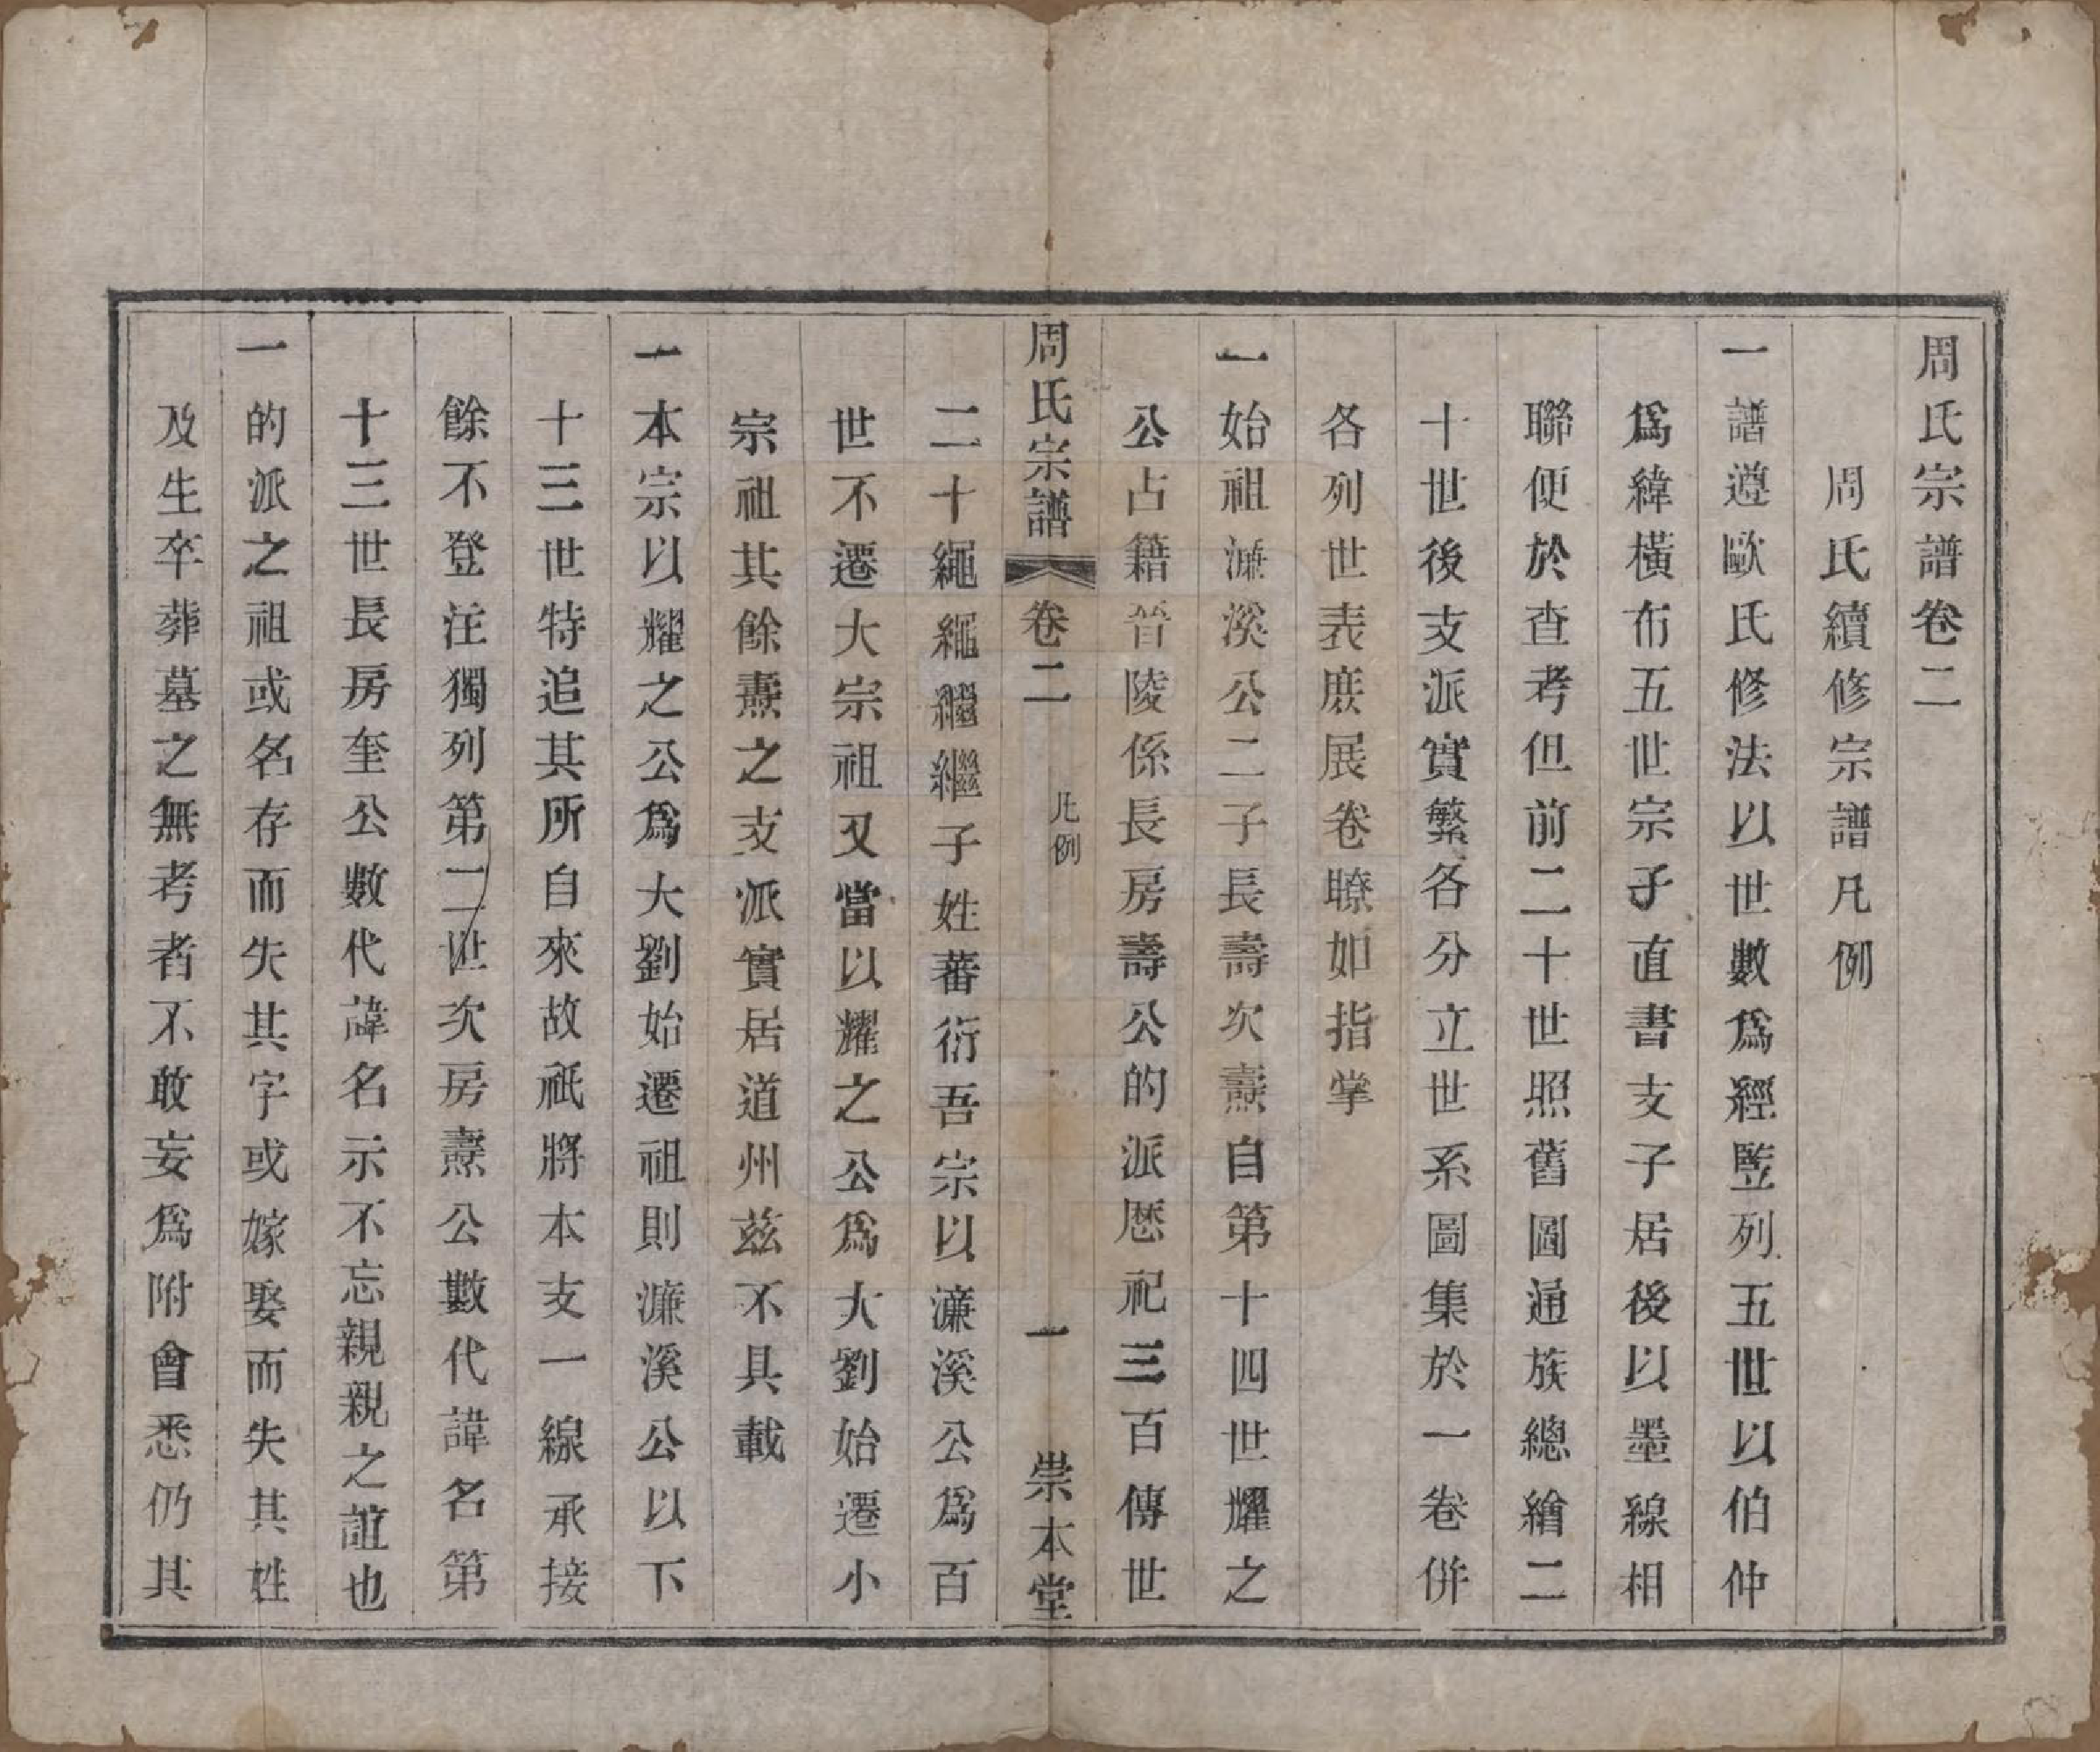 周氏宗譜卷二
周氏續修宗譜凡例
一譜遵歐氏修法以世數爲經竪列五世以伯仲
爲緯橫布五世宗子直書支子居後以墨線相
聯便於查考但前二十世照舊圖通族總繪二
十世後支派實繁各分立世系圖集於一卷併
各列世表庶展卷瞭如指掌
一始祖濂溪公二子長壽次燾自第十四世耀之
公占籍晉陵係長房壽公的派歷祀三百傳世
周氏宗譜
卷二
凡例
一
崇本堂
二十繩繩繼繼子姓蕃衍吾宗以濂溪公爲百
世不遷大宗祖又當以耀之公爲大劉始遷小
宗祖其餘燾之支派實居道州茲不具載
一本宗以耀之公爲大劉始遷祖則濂溪公以下
十三世特追其所自來故祇將本支一線承接
餘不登注獨列第二世次房燾公數代諱名第
十三世長房奎公數代諱名示不忘親親之誼也
一的派之祖或名存而失其字或嫁娶而失其姓
及生卒葬墓之無考者不敢妄爲附會悉仍其